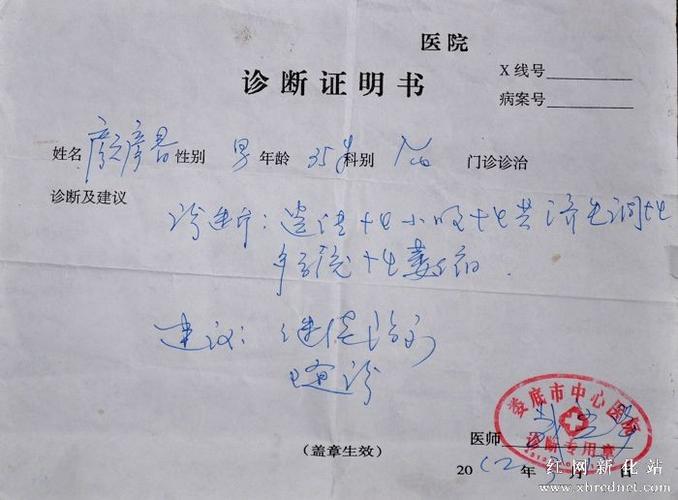 医院
诊断证明书
X线号
病案号
姓名 性别 男 年龄 35岁 科别 门诊诊治
诊断及建议
诊断：遗传性小脑性共济失调性
多系统性萎缩.
建议：继续治疗
随诊
娄底市中心医院
诊断专用章
医师
(盖章生效)
2012年 月 日
红网新化站
www.xhrednet.com